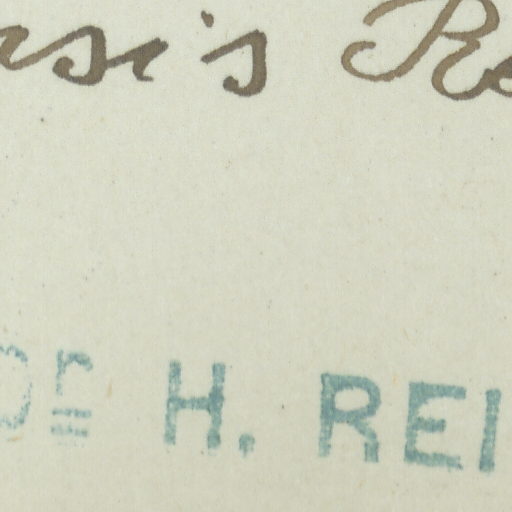 rsi's Re
Dr H. REI